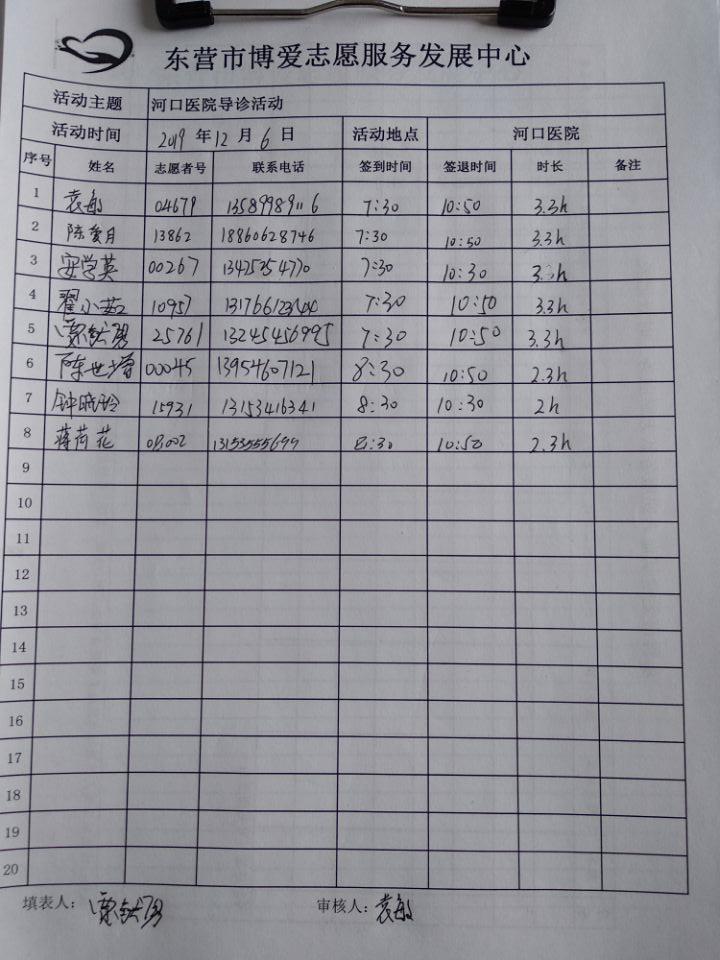 东营市博爱志愿服务发展中心
活动主题 河口医院导诊活动
活动时间 2019 年 12 月 6 日 活动地点 河口医院
序号 姓名 志愿者号 联系电话 签到时间 签退时间 时长 备注
1 袁敏 04679 13589989116 7:30 10:50 3.3h
2 陈爱月 13862 18860628746 7:30 10:50 3.3h
3 安学英 00267 13475354770 7:30 10:30 3.3h
4 翟小茹 10957 7:30 10:50 3.3h
5 25761 13245456995 7:30 10:50 3.3h
6 陈世增 00045 13954607121 8:30 10:50 2.3h
7 钟晓玲 15931 13153416341 8:30 10:30 2h
8 蒋荷花 13153555699 8:30 10:50 2.3h
9
10
11
12
13
14
15
16
17
18
19
20
填表人: 审核人: 袁敏